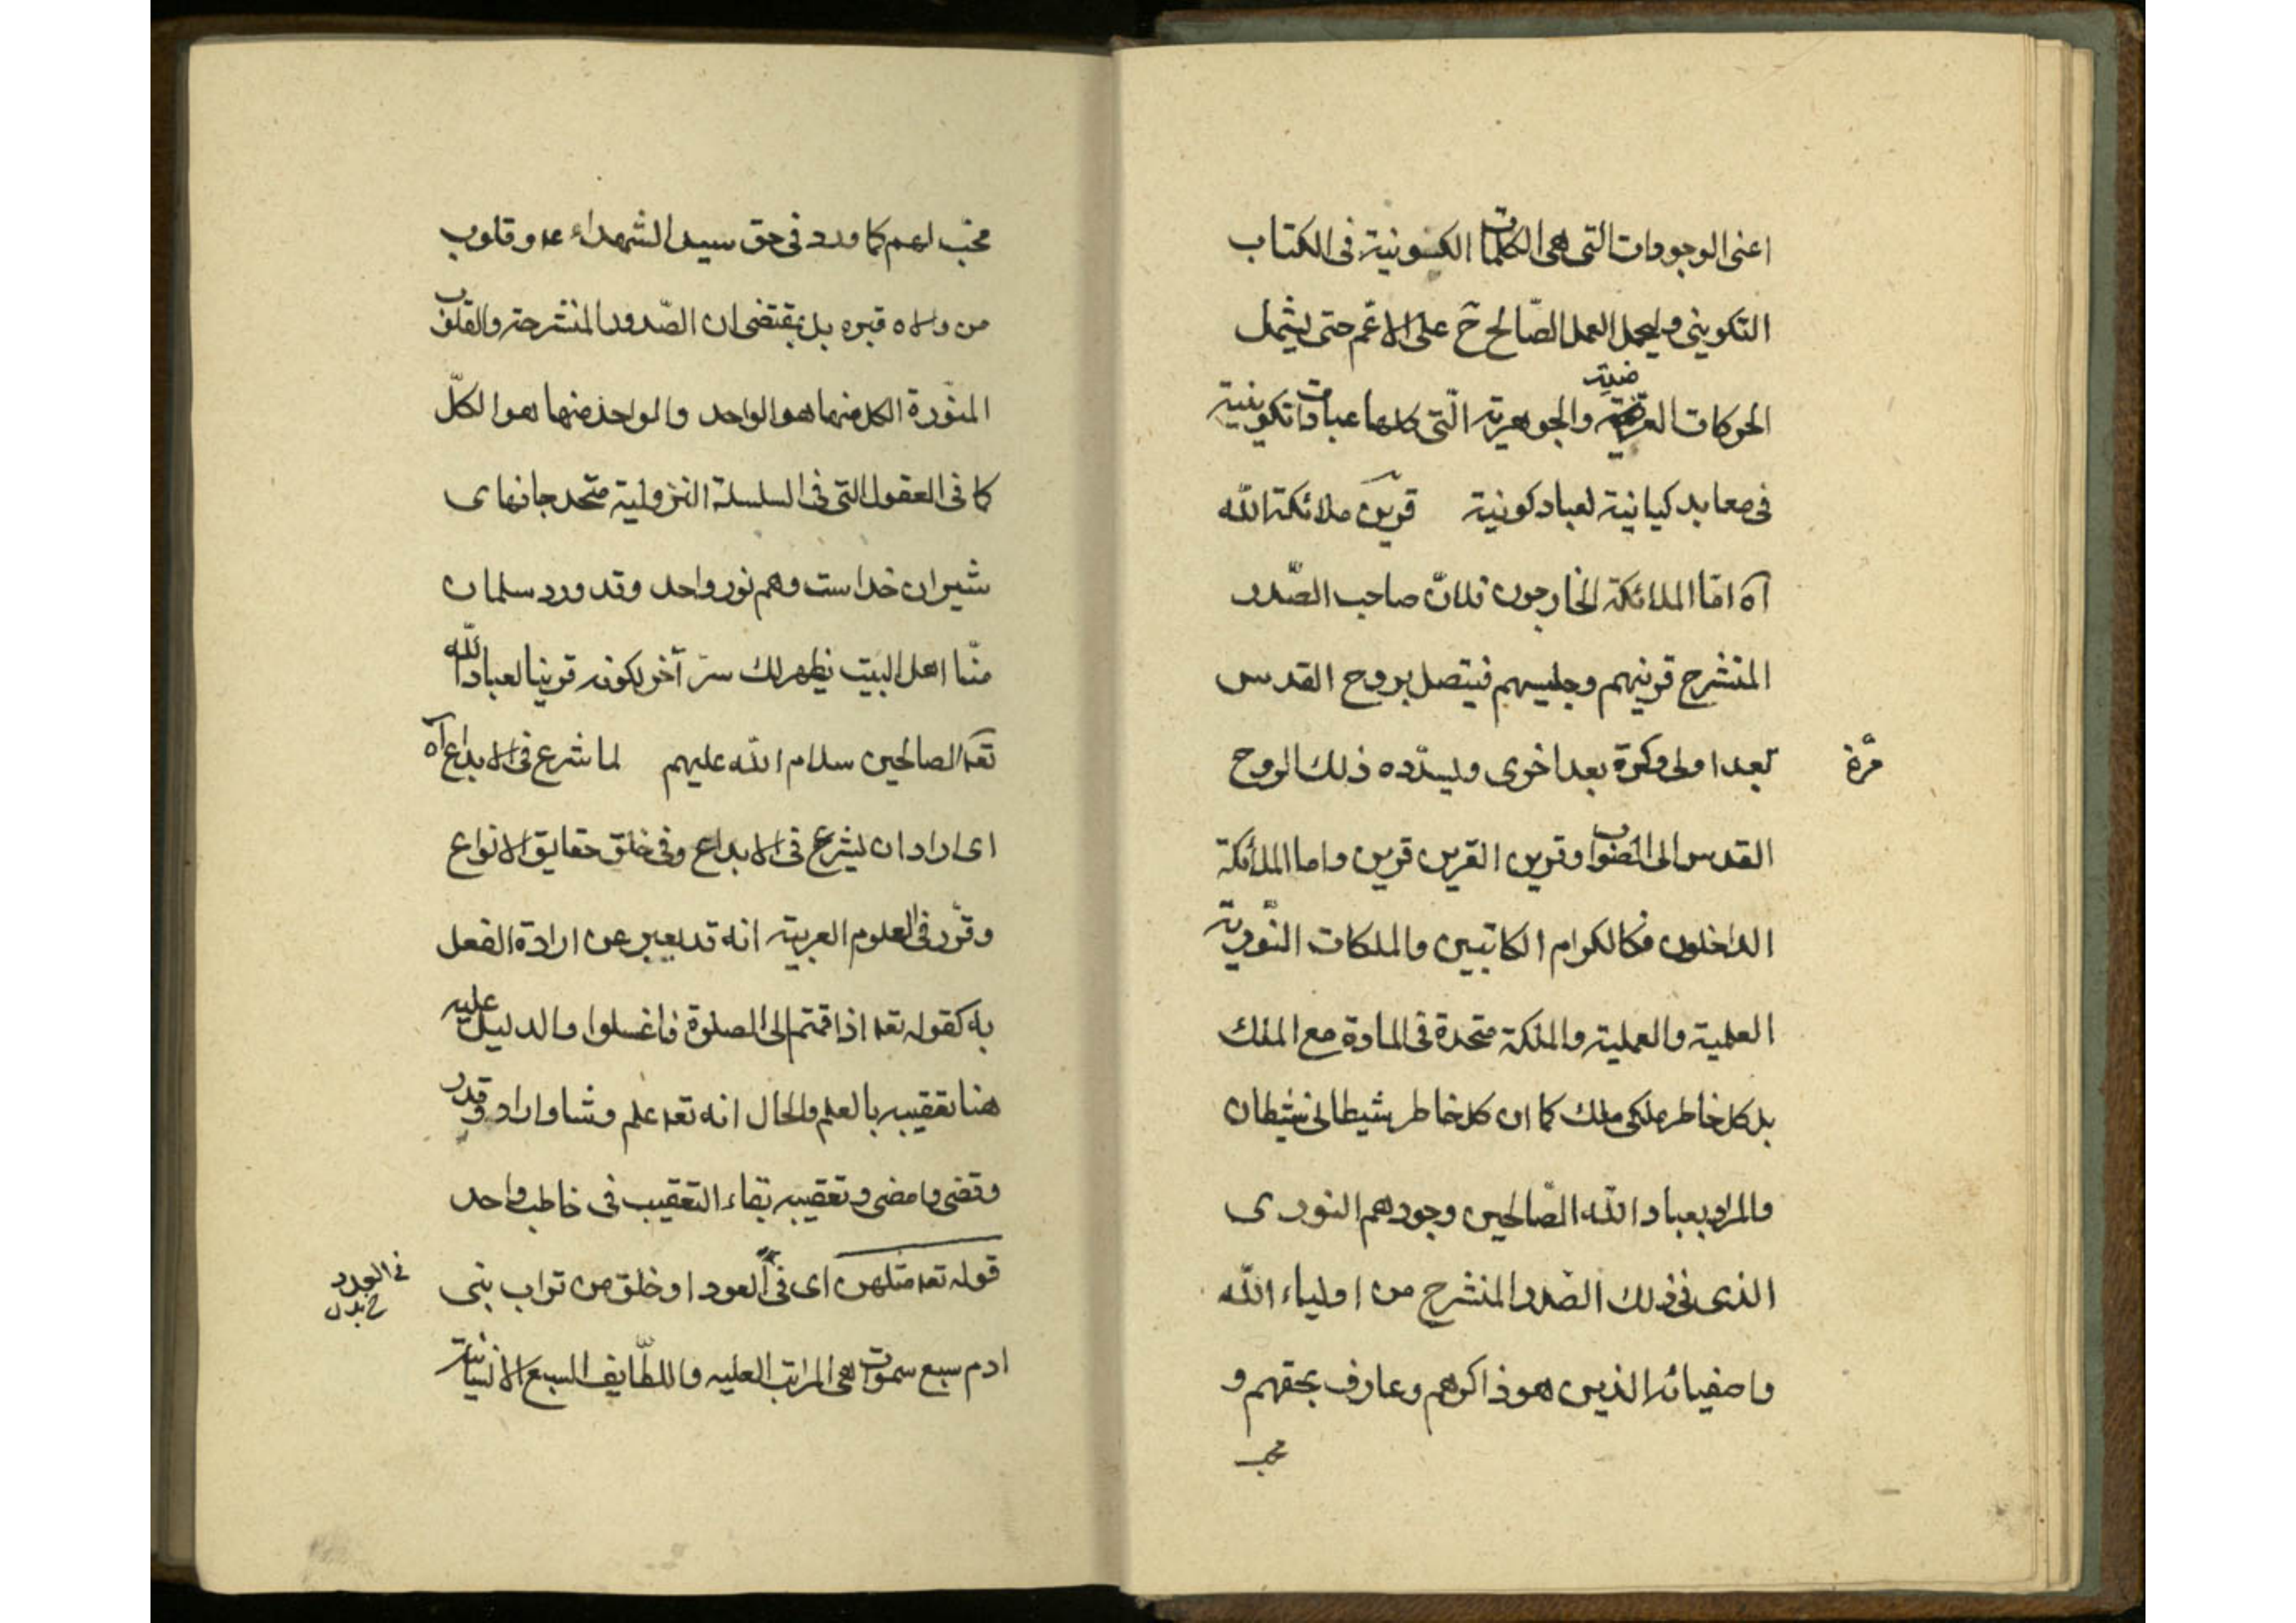 اعنى الوجودات التى هى الكلمات الكونية فى الكتاب
التكوينى وليحمل العمل الصّالح ح على الاعّم حتى يشمل
الحركات العرضية والجوهرية الّتى كلها عبادات تكوينية
فى معابد كيانية لعباد كونية قرين ملائكة الله
آه امّا الملائكة الخارجون فلانّ صاحب الصّدر
المنشرح قرينهم وجليسهم فيتصل بروح القدس
مرّة
بعد اولى وكرة بعد اخرى ويسدّده ذلك الروح
القدس الى الصّواب وقرين القرين قرين واما الملائكة
الداخلون فكالكرام الكاتبين والملكات النّورية
العلمية والعملية والملكة متحدة فى المادة مع الملك
بل كل خاطر ملكى ملك كما ان كل خاطر شيطانى شيطان
والمراد بعباد الله الصّالحين وجودهم النورى
الذى فى ذلك الصّدر المنشرح من اولياء الله
واصفيائه الذين هو ذاكرهم وعارف بحقهم و
محب
محبّ لهم كما ورد فى حق سيد الشهداء ع و قلوب
من والاه قبره بل يقتضى ان الصّدور المنشرحة والقلوب
المنوّرة الكل منها هو الواحد والواحد منها هو الكلّ
كما فى العقول التى فى السلسلة النزولية متحد جانهاى
شيران خداست وهم نور واحد وقد ورد سلمان
منّا اهل البيت يظهر لك سرّ آخر لكونه قرينا لعباد الله
تعه الصالحين سلام الله عليهم لما شرع فى الابداع آه
اى اراد ان يشرع فى الابداع وفى خلق حقايق الانواع
وقرّر فى العلوم العربية انه قد يعبر عن ارادة الفعل
به كقوله تعه اذا قمتم الى الصلوة فاغسلوا والدليل عليه
هنا تعقيبه بالعلم والحال انه تعه علم وشا واراد وقدر
وقضى وامضى وتعقيبه بفاء التعقيب فى
قوله تعه مثلهن اى فى العود او خلق من تراب بنى
فى العدد
خ بدل
ادم سبع سموات هى المراتب العليه واللطّايف السبع الانسانية